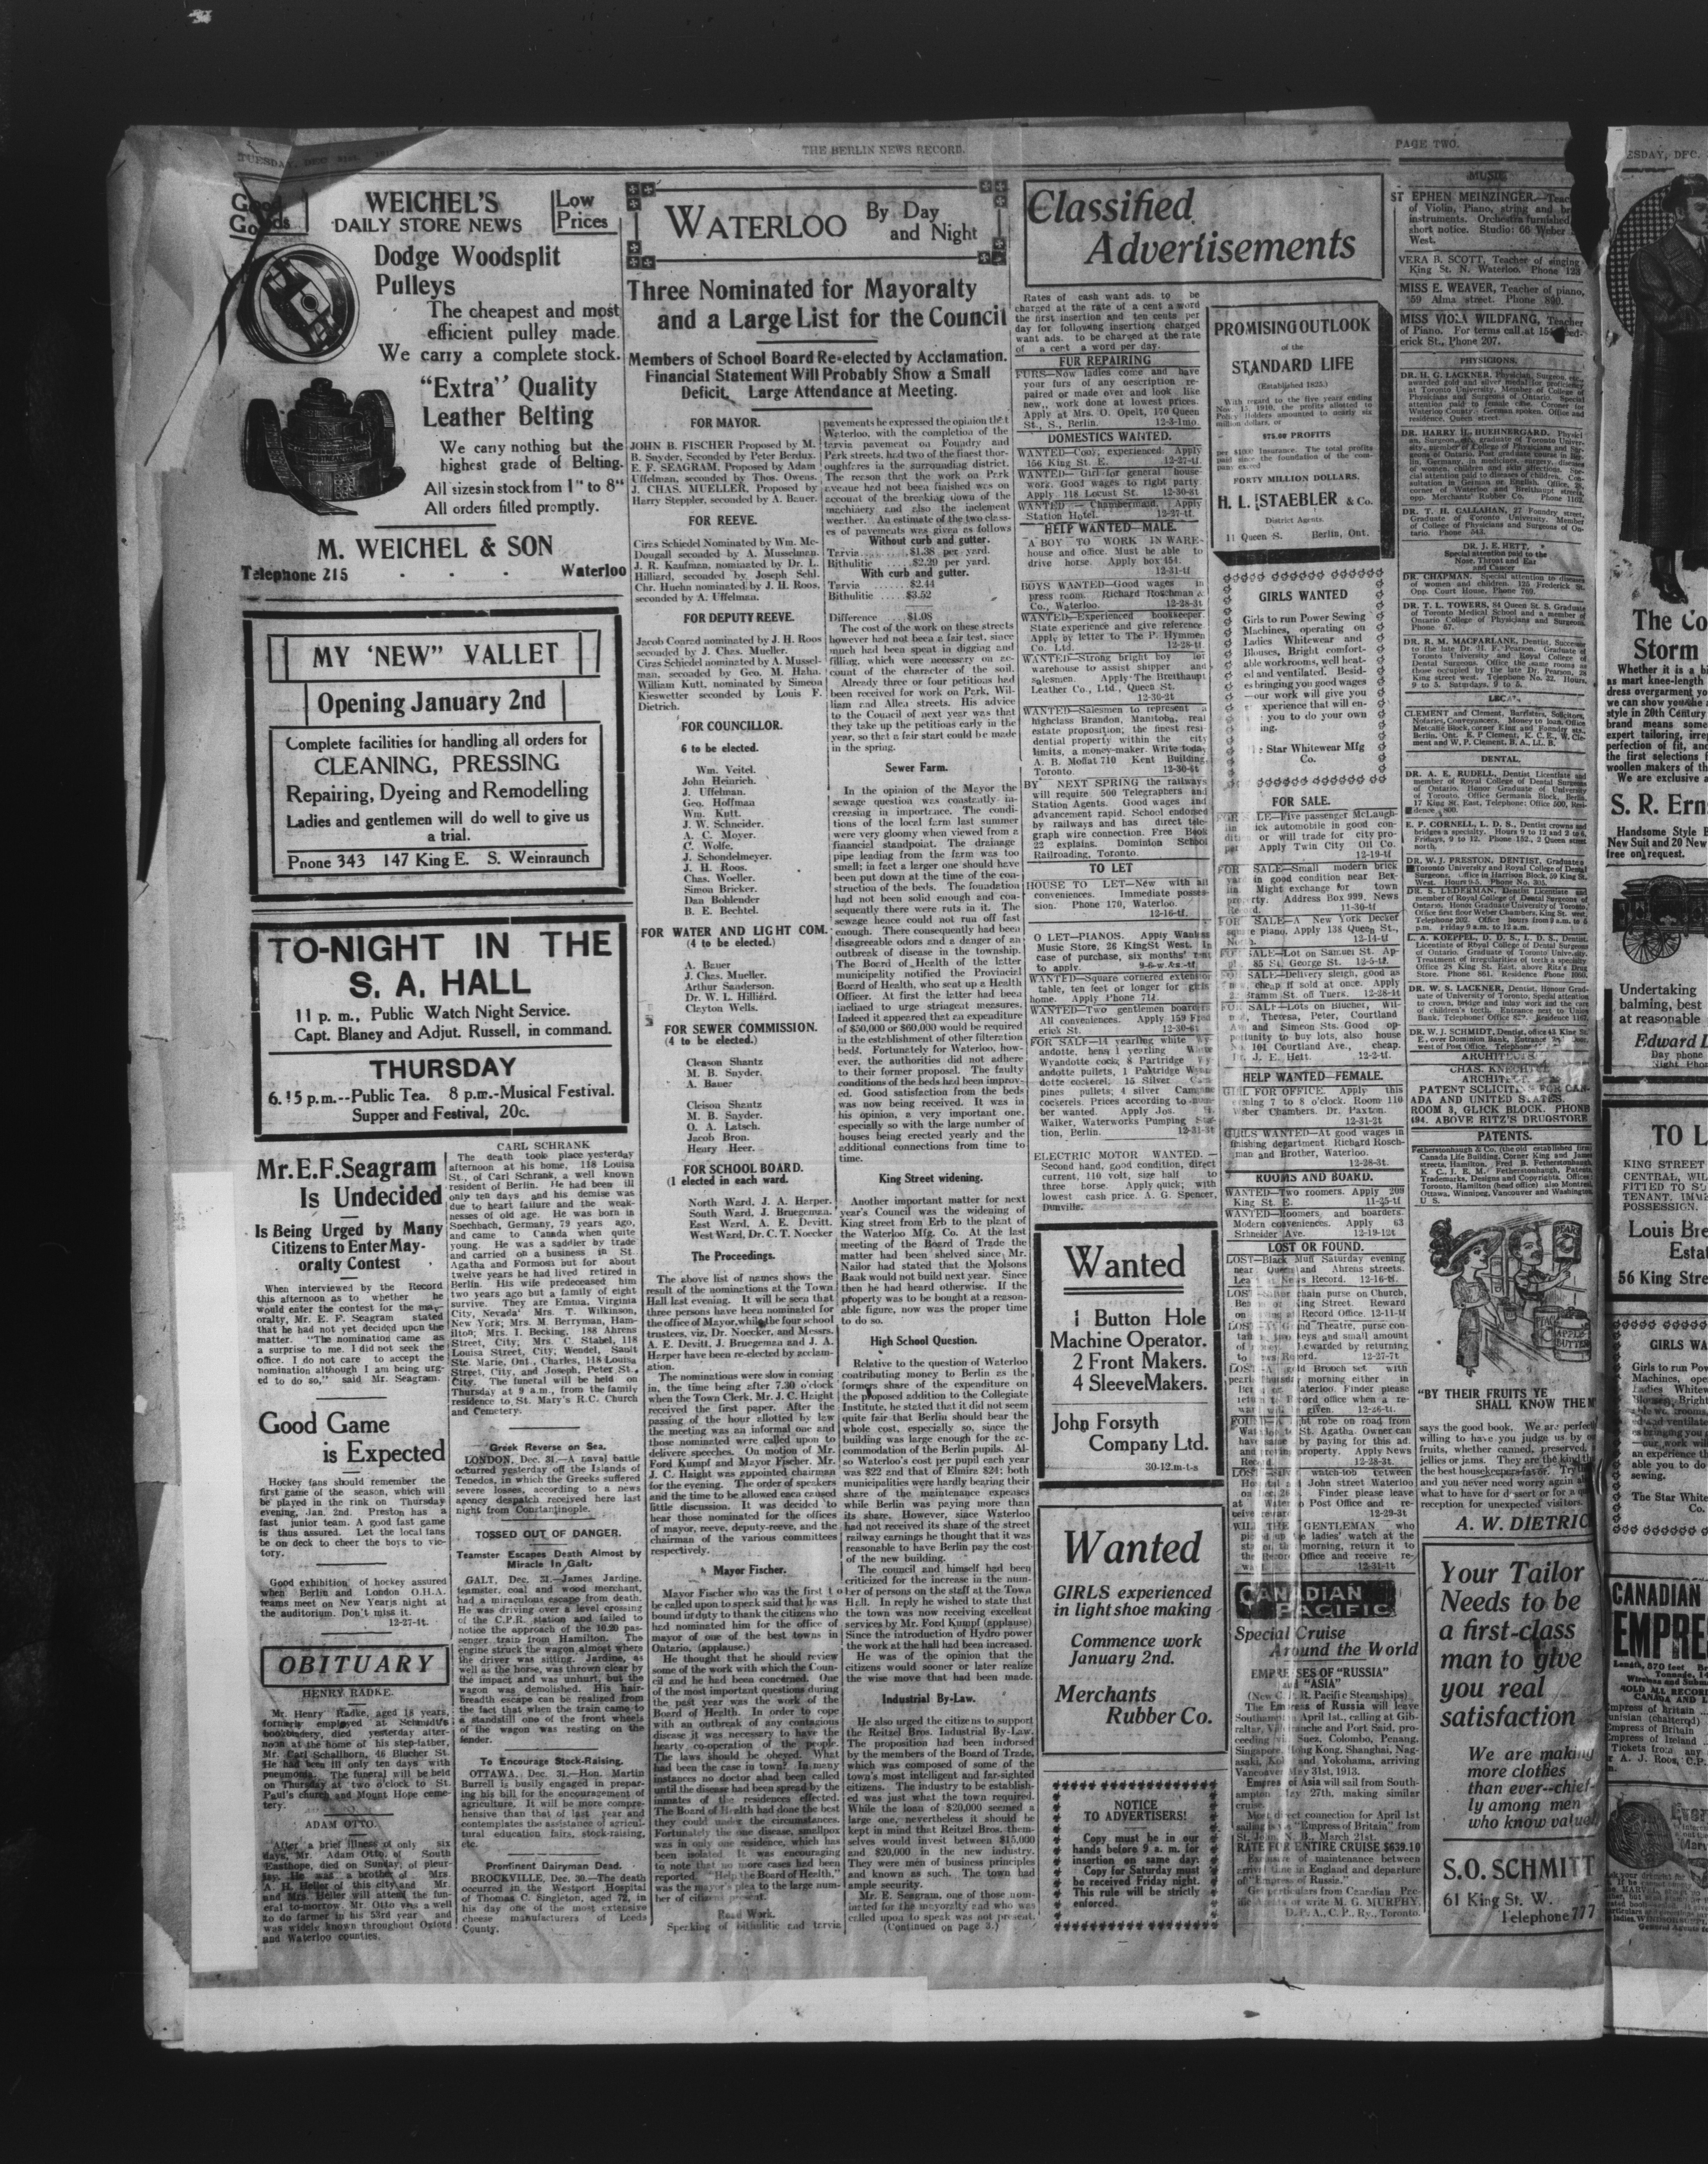 TUESDAY, DEC 31st,
THE BERLIN NEWS RECORD.
PAGE TWO.
Good
Goods
WEICHEL'S
DAILY STORE NEWS
Low
Prices
Dodge Woodsplit
Pulleys
The cheapest and most
efficient pulley made.
We carry a complete stock.
"Extra" Quality
Leather Belting
We carry nothing but the
highest grade of Belting.
All sizes in stock from 1" to 8"
All orders filled promptly.
M. WEICHEL & SON
Telephone 215 - - - Waterloo
MY 'NEW" VALLET
Opening January 2nd
Complete facilities for handling all orders for
CLEANING, PRESSING
Repairing, Dyeing and Remodelling
Ladies and gentlemen will do well to give us
a trial.
Pnone 343 147 King E. S. Weinraunch
TO-NIGHT IN THE
S. A. HALL
11 p. m., Public Watch Night Service.
Capt. Blaney and Adjut. Russell, in command.
THURSDAY
6.15 p.m.--Public Tea. 8 p.m.-Musical Festival.
Supper and Festival, 20c.
Mr. E. F. Seagram
Is Undecided
Is Being Urged by Many
Citizens to Enter May-
oralty Contest
When interviewed by the Record
this afternoon as to whether he
would enter the contest for the may-
oralty, Mr. E. F. Seagram stated
that he had not yet decided upon the
matter. "The nomination came as
a surprise to me. I did not seek the
office. I do not care to accept the
nomination although I am being urg-
ed to do so," said Mr. Seagram.
Good Game
is Expected
Hockey fans should remember the
first game of the season, which will
be played in the rink on Thursday
evening, Jan. 2nd. Preston has a
fast junior team. A good fast game
is thus assured. Let the local fans
be on deck to cheer the boys to vic-
tory.
Good exhibition of hockey assured
when Berlin and London O.H.A.
teams meet on New Years night at
the auditorium. Don't miss it.
12-27-4t.
OBITUARY
HENRY RADKE.
Mr. Henry Radke, aged 18 years,
formerly employed at Schmidt's
bookbindery, died yesterday after-
noon at the home of his step-father,
Mr. Carl Schallhorn, 46 Blucher St.
He had been ill only ten days with
pneumonia. The funeral will be held
on Thursday at two o'clock to St.
Paul's church and Mount Hope ceme-
tery.
ADAM OTTO.
After a brief illness of only six
days, Mr. Adam Otto, of South
Easthope, died on Sunday, of pleur-
isy. He was a brother of Mrs
A. H. Heller of this city and Mr.
and Mrs. Heller will attend the fun-
eral to-morrow. Mr. Otto was a well
to do farmer in his 53rd year and
was widely known throughout Oxford
and Waterloo counties.
CARL SCHRANK
The death took place yesterday
afternoon at his home, 118 Louisa
St., of Carl Schrank, a well known
resident of Berlin. He had been ill
only ten days and his demise was
due to heart failure and the weak-
nesses of old age. He was born in
Spechbach, Germany, 79 years ago,
and came to Canada when quite
young. He was a saddler by trade
and carried on a business in St.
Agatha and Formosa but for about
twelve years he had lived retired in
Berlin. His wife predeceased him
two years ago but a family of eight
survive. They are Emma, Virginia
City, Nevada' Mrs. T. Wilkinson,
New York; Mrs. M. Berryman, Ham-
ilton; Mrs. I. Becking, 188 Ahrens
Street, City; Mrs. C. Stabel, 118
Louisa Street, City; Wendel, Sault
Ste. Marie, Ont., Charles, 118 Louisa
Street, City, and Joseph, Peter St.,
City. The funeral will be held on
Thursday at 9 a.m., from the family
residence to St. Mary's R.C. Church
and Cemetery.
Greek Reverse on Sea.
LONDON, Dec. 31.—A naval battle
occurred yesterday off the Islands of
Tenedos, in which the Greeks suffered
severe losses, according to a news
agency despatch received here last
night from Constantinople.
TOSSED OUT OF DANGER.
Teamster Escapes Death Almost by
Miracle In Galt.
GALT, Dec. 31.—James Jardine,
teamster, coal and wood merchant,
had a miraculous escape from death.
He was driving over a level crossing
of the C.P.R. station and failed to
notice the approach of the 10.20 pas-
senger train from Hamilton. The
engine struck the wagon almost where
the driver was sitting. Jardine, as
well as the horse, was thrown clear by
the impact and was unhurt, but the
wagon was demolished. His hair-
breadth escape can be realized from
the fact that when the train came to
a standstill one of the front wheels
of the wagon was resting on the
fender.
To Encourage Stock-Raising.
OTTAWA, Dec. 31.—Hon. Martin
Burrell is busily engaged in prepar-
ing his bill for the encouragement of
agriculture. It will be more compre-
hensive than that of last year and
contemplates the assistance of agricul-
tural education fairs, stock-raising,
etc.
Prominent Dairyman Dead.
BROCKVILLE, Dec. 30.—The death
occurred in the Westport Hospital
of Thomas C. Singleton, aged 72, in
his day one of the most extensive
cheese manufacturers of Leeds
County.
WATERLOO By Day
and Night
Three Nominated for Mayoralty
and a Large List for the Council
Members of School Board Re-elected by Acclamation.
Financial Statement Will Probably Show a Small
Deficit. Large Attendance at Meeting.
FOR MAYOR.
JOHN B. FISCHER Proposed by M.
B. Snyder, Seconded by Peter Berdux.
E. F. SEAGRAM, Proposed by Adam
Uffelman, seconded by Thos. Owens.
J. CHAS. MUELLER, Proposed by
Harry Steppler, seconded by A. Bauer.
FOR REEVE.
Ciras Schiedel Nominated by Wm. Mc-
Dougall seconded by A. Musselman.
J. R. Kaufman, nominated by Dr. L.
Hilliard, seconded by Joseph Schl.
Chr. Huehn nominated by J. H. Roos,
seconded by A. Uffelman.
FOR DEPUTY REEVE.
Jacob Conrad nominated by J. H. Roos
seconded by J. Chas. Mueller.
Ciras Schiedel nominated by A. Mussel-
man, seconded by Geo. M. Hahn.
William Kutt, nominated by Simeon
Kieswetter seconded by Louis F.
Dietrich.
FOR COUNCILLOR.
6 to be elected.
Wm. Veitel.
John Heinrich.
J. Uffelman.
Geo. Hoffman
Wm. Kutt.
J. W. Schneider.
A. C. Moyer.
C. Wolfe.
J. Schondelmeyer.
J. H. Roos.
Chas. Woeller.
Simon Bricker.
Dan Bohlender
B. E. Bechtel.
FOR WATER AND LIGHT COM.
(4 to be elected.)
A. Bauer
J. Chas. Mueller.
Arthur Sanderson.
Dr. W. L. Hilliard.
Clayton Wells.
FOR SEWER COMMISSION.
(4 to be elected.)
Cleason Shantz
M. B. Snyder.
A. Bauer
Cleison Shantz
M. B. Snyder.
O. A. Latsch.
Jacob Bron.
Henry Heer.
FOR SCHOOL BOARD.
(1 elected in each ward.
North Ward, J. A. Harper.
South Ward, J. Bruegeman.
East Ward, A. E. Devitt.
West Ward, Dr. C. T. Noecker
The Proceedings.
The above list of names shows the
result of the nominations at the Town
Hall last evening. It will be seen that
three persons have been nominated for
the office of Mayor, while the four school
trustees, viz, Dr. Noecker, and Messrs.
A. E. Devitt, J. Bruegeman and J. A.
Harper have been re-elected by acclam-
ation.
The nominations were slow in coming
in, the time being after 7.30 o'clock
when the Town Clerk, Mr. J. C. Haight
received the first paper. After the
passing of the hour allotted by law
the meeting was an informal one and
those nominated were called upon to
deliver speeches. On motion of Mr.
Ford Kumpf and Mayor Fischer, Mr.
J. C. Haight was appointed chairman
for the evening. The order of speakers
and the time to be allowed each caused
little discussion. It was decided to
hear those nominated for the offices
of mayor, reeve, deputy-reeve, and the
chairman of the various committees
respectively.
Mayor Fischer.
Mayor Fischer who was the first to
be called upon to speak said that he was
bound in duty to thank the citizens who
had nominated him for the office of
mayor of one of the best towns in
Ontario, (applause.)
He thought that he should review
some of the work with which the Coun-
cil and he had been concerned. One
of the most important questions during
the past year was the work of the
Board of Health. In order to cope
with an outbreak of any contagious
disease it was necessary to have the
hearty co-operation of the people.
The laws should be obeyed. What
had been the case in town? In many
instances no doctor ahad been called
until the disease had been spread by the
inmates of the residences effected.
The Board of Health had done the best
they could under the circumstances.
Fortunately the one disease, smallpox
was in only one residence, which has
been isolated. It was encouraging
to note that no more cases had been
reported. "Help the Board of Health,"
was the mayor's plea to the large num-
ber of citizens present.
Road Work.
Speaking of bithulitic and tarvia
pavements he expressed the opinion that
Waterloo, with the completion of the
tarvia pavement on Foundry and
Park streets, had two of the finest thor-
oughfares in the surrounding district.
The reason that the work on Park
avenue had not been finished was on
account of the breaking down of the
machinery and also the inclement
weather. An estimate of the two class-
es of pavements was given as follows
Without curb and gutter.
Tarvia........$1.38 per yard.
Bithulitic ....$2.29 per yard.
With curb and gutter.
Tarvia ......$2.44
Bithulitic ....$3.52
Difference ....$1.08
The cost of the work on these streets
however had not been a fair test, since
much had been spent in digging and
filling, which were necessary on ac-
count of the character of the soil.
Already three or four petitions had
been received for work on Park, Wil-
liam and Allen streets. His advice
to the Council of next year was that
they take up the petitions early in the
year, so that a fair start could be made
in the spring.
Sewer Farm.
In the opinion of the Mayor the
sewage question was constantly in-
creasing in importance. The condi-
tions of the local farm last summer
were very gloomy when viewed from a
financial standpoint. The drainage
pipe leading from the farm was too
small; in fact a larger one should have
been put down at the time of the con-
struction of the beds. The foundation
had not been solid enough and con-
sequently there were ruts in it. The
sewage hence could not run off fast
enough. There consequently had been
disagreeable odors and a danger of an
outbreak of disease in the township.
The Board of Health of the latter
municipality notified the Provincial
Board of Health, who sent up a Health
Officer. At first the latter had been
inclined to urge stringent measures.
Indeed it appeared that an expenditure
of $50,000 or $60,000 would be required
in the establishment of other filteration
beds. Fortunately for Waterloo, how-
ever, the authorities did not adhere
to their former proposal. The faulty
conditions of the beds had been improv-
ed. Good satisfaction from the beds
was now being received. It was in
his opinion, a very important one,
especially so with the large number of
houses being erected yearly and the
additional connections from time to
time.
King Street widening.
Another important matter for next
year's Council was the widening of
King street from Erb to the plant of
the Waterloo Mfg. Co. At the last
meeting of the Board of Trade the
matter had been shelved since Mr.
Nailor had stated that the Molsons
Bank would not build next year. Since
then he had heard otherwise. If the
property was to be bought at a reason-
able figure, now was the proper time
to do so.
High School Question.
Relative to the question of Waterloo
contributing money to Berlin as the
formers share of the expenditure on
the proposed addition to the Collegiate
Institute, he stated that it did not seem
quite fair that Berlin should bear the
whole cost, especially so, since the
building was large enough for the ac-
commodation of the Berlin pupils. Al-
so Waterloo's cost per pupil each year
was $22 and that of Elmira $24; both
municipalities were hardly bearing their
share of the maintenance expenses
while Berlin was paying more than
its share. However, since Waterloo
had not received its share of the street
railway earnings he thought that it was
reasonable to have Berlin pay the cost
of the new building.
The council and himself had been
criticized for the increase in the num-
ber of persons on the staff at the Town
Hall. In reply he wished to state that
the town was now receiving excellent
services by Mr. Ford Kumpf (applause)
Since the introduction of Hydro power
the work at the hall had been increased.
He was of the opinion that the
citizens would sooner or later realize
the wise move that had been made.
Industrial By-Law.
He also urged the citizens to support
the Reitzel Bros. Industrial By-Law.
The proposition had been indorsed
by the members of the Board of Trade,
which was composed of some of the
town's most intelligent and far-sighted
citizens. The industry to be establish-
ed was just what the town required.
While the loan of $20,000 seemed a
large one, nevertheless it should be
kept in mind that Reitzel Bros. them-
selves would invest between $15,000
and $20,000 in the new industry.
They were men of business principles
and known as such. The town had
ample security.
Mr. E. Seagram, one of those nom-
inated for the mayoralty and who was
called upon to speak was not present.
(Continued on page 3.)
Classified
Advertisements
Rates of cash want ads. to be
charged at the rate of a cent a word
the first insertion and ten cents per
day for following insertions charged
want ads. to be charged at the rate
of a cent a word per day.
FUR REPAIRING
FURS—Now ladies come and have
your furs of any description re-
paired or made over and look like
new,, work done at lowest prices.
Apply at Mrs. O. Opelt, 170 Queen
St., S., Berlin. 12-3-1mo.
DOMESTICS WANTED.
WANTED—Cook, experienced. Apply
156 King St. E. 12-27-tf.
WANTED—Girl for general house-
work. Good wages to right party.
Apply 118 Locust St. 12-30-3t
WANTED — Chambermaid, Apply
Station Hotel. 12-27-tf.
HELP WANTED—MALE.
A BOY TO WORK IN WARE-
house and office. Must be able to
drive horse. Apply box 454.
12-31-tf
BOYS WANTED—Good wages in
press room. Richard Roschman &
Co., Waterloo. 12-28-3t
WANTED—Experienced bookkeeper.
State experience and give reference.
Apply by letter to The P. Hymmen
Co. Ltd. 12-28-tf.
WANTED—Strong bright boy for
warehouse to assist shipper and
salesmen. Apply The Breithaupt
Leather Co., Ltd., Queen St.
12-30-2t
WANTED—Salesmen to represent a
highclass Brandon, Manitoba, real
estate proposition; the finest resi-
dential property within the city
limits, a money-maker. Write today,
A. B. Moffat 710 Kent Building,
Toronto. 12-30-6t
BY NEXT SPRING the railways
will require 500 Telegraphers and
Station Agents. Good wages and
advancement rapid. School endorsed
by railways and has direct tele-
graph wire connection. Free Book
22 explains. Dominion School
Railroading, Toronto.
TO LET
HOUSE TO LET—New with all
conveniences. Immediate posses-
sion. Phone 170, Waterloo.
12-16-tf.
O LET—PIANOS. Apply Wanless
Music Store, 26 King St West. In
case of purchase, six months' rent
to apply. 9-6-w.&s.-tf.
WANTED—Square cornered extension
table, ten feet or longer for girls
home. Apply Phone 714.
WANTED—Two gentlemen boarders.
All conveniences. Apply 159 Fred
erick St. 12-30-6t
FOR SALE—14 yearling white Wy-
andotte, hens 1 yearling White
Wyandotte cock, 8 Partridge Wy-
andotte pullets, 1 Paktridge Wyan-
dotte cockerel; 15 Silver Cam-
pines pullets; 4 silver Campine
cockerels. Prices according to num-
ber wanted. Apply Jos. H.
Walker, Waterworks Pumping Sta-
tion, Berlin. 12-31-3t
ELECTRIC MOTOR WANTED. —
Second hand, good condition, direct
current, 110 volt, size half to
three horse. Apply quick, with
lowest cash price. A. G. Spencer,
Dunville.
Wanted
1 Button Hole
Machine Operator.
2 Front Makers.
4 SleeveMakers.
John Forsyth
Company Ltd.
30-12.m-t-s
Wanted
GIRLS experienced
in light shoe making
Commence work
January 2nd.
Merchants
Rubber Co.
NOTICE
TO ADVERTISERS!
Copy must be in our
hands before 9 a. m. for
insertion on same day.
Copy for Saturday must
be received Friday night.
This rule will be strictly
enforced.
PROMISING OUTLOOK
of the
STANDARD LIFE
(Established 1825.)
With regard to the five years ending
Nov. 15, 1910, the profits allotted to
Policy Holders amounted to nearly six
million dollars, or
$75.00 PROFITS
per $1000 Insurance. The total profits
paid since the foundation of the com-
pany exceed
FORTY MILLION DOLLARS.
H. L. STAEBLER & Co.
District Agents.
11 Queen S. Berlin, Ont.
GIRLS WANTED
Girls to run Power Sewing
Machines, operating on
Ladies Whitewear and
Blouses, Bright comfort-
able workrooms, well heat-
ed and ventilated. Besid-
es bringing you good wages
—our work will give you
xperience that will en-
you to do your own
ing.
Star Whitewear Mfg
Co.
FOR SALE.
FOR SALE—Five passenger McLaugh-
lin Buick automobile in good con-
dition or will trade for city pro-
Apply Twin City Oil Co.
12-19-tf
FOR SALE—Small modern brick
in good condition near Ber-
lin. Might exchange for town
property. Address Box 999, News
Record. 11-30-tf
FOR SALE—A New York Decker
square piano. Apply 138 Queen St.,
North. 12-14-tf
FOR SALE—Lot on Samuel St. Ap-
85 St. George St. 12-5-tf.
FOR SALE—Delivery sleigh, good as
new, cheap if sold at once. Apply
Bramm St. off Tuers. 12-28-tf
FOR SALE—Lots on Blucher, Wil-
Theresa, Peter, Courtland
Ave and Simeon Sts. Good op-
portunity to buy lots, also house
No. 101 Courtland Ave., cheap.
Dr. J. E. Hett. 12-2-tf.
HELP WANTED—FEMALE.
GIRL FOR OFFICE. Apply this
evening 7 to 8 o'clock. Room 110
Weber Chambers. Dr. Paxton.
12-31-2t
GIRLS WANTED—At good wages in
finishing department. Richard Rosch-
man and Brother, Waterloo.
12-28-3t.
ROOMS AND BOARD.
WANTED—Two roomers. Apply 209
King St. E. 11-25-tf
WANTED—Roomers, and boarders.
Modern conveniences. Apply 63
Schneider Ave. 12-19-12t
LOST OR FOUND.
LOST—Black Muff Saturday evening
near Queen and Ahrens streets.
Leave at News Record. 12-16-tf.
LOST—Silver chain purse on Church,
or King Street. Reward
on at Record Office. 12-11-tf
LOST—At Grand Theatre, purse con-
taining two keys and small amount
of money. Rewarded by returning
to News Record. 12-27-7t
LOST—A gold Brooch set with
pearls Thursday morning either in
Berlin or Waterloo. Finder please
return to Record office when a re-
ward will be given. 12-26-tf.
FOUND—A light robe on road from
Waterloo to St. Agatha. Owner can
have same by paying for this ad.
and proving property. Apply News
Record. 12-28-3t.
LOST—Silver watch-fob between
John street Waterloo
on Dec. 28. Finder please leave
at Waterloo Post Office and re-
ceive reward. 12-29-3t
WILL THE GENTLEMAN who
picked up the ladies' watch at the
station, this morning, return it to
the Record Office and receive re-
ward. 12-31-1t
CANADIAN
PACIFIC
Special Cruise
Around the World
EMPRESSES OF "RUSSIA"
and "ASIA"
(New C. P. R. Pacific Steamships)
The Empress of Russia will leave
Southampton April 1st., calling at Gib-
raltar, Villefranche and Port Said, pro-
ceeding via Suez, Colombo, Penang,
Singapore, Hong Kong, Shanghai, Nag-
asaki, Kobe and Yokohama, arriving
Vancouver May 31st, 1913.
Empress of Asia will sail from South-
ampton May 27th, making similar
cruise.
Most direct connection for April 1st
sailing is via "Empress of Britain" from
St. John, N. B., March 21st.
RATE FOR ENTIRE CRUISE $639.10
Exclusive of maintenance between
arrival time in England and departure
of "Empress of Russia."
Get particulars from Canadian Pac-
ific Agents or write M. G. MURPHY,
D. P. A., C. P., Ry., Toronto.
MUSIC
ST EPHEN MEINZINGER.—Teac
of Violin, Piano, string and br
instruments. Orchestra furnished
short notice. Studio: 66 Weber
West.
VERA B. SCOTT, Teacher of singing
King St. N. Waterloo. Phone 123
MISS E. WEAVER, Teacher of piano,
59 Alma street. Phone 800.
MISS VIOLA WILDFANG, Teacher
of Piano. For terms call at 15
erick St., Phone 207.
PHYSICIONS.
DR. H. G. LACKNER, Physician, Surgeon, etc.,
awarded gold and silver medal for proficiency
at Toronto University, Member of College of
Physicians and Surgeons of Ontario. Special
attention paid to female line. Coroner for
Waterloo County. German spoken. Office and
residence, Queen street.
DR. HARRY H. HUEHNERGARD. Physici-
an, Surgeon, etc., graduate of Toronto Univer-
sity, member of College of Physicians and Sur-
geons of Ontario. Post graduate course in Ber-
lin, Germany, in medicine, surgery, diseases
of women, children and skin affections. Spe-
cial attention to diseases of children. Con-
sultation in German or English. Office,
corner of Waterloo and Breithaupt streets,
opp. Merchants' Rubber Co. Phone 1102.
DR. T. H. CALLAHAN, 27 Foundry street,
Graduate of Toronto University. Member
of College of Physicians and Surgeons of On-
tario. Phone 543.
DR. J. E. HETT,
Special attention paid to the
Nose, Throat and Ear
and Cancer
DR. CHAPMAN. Special attention to diseases
of women and children. 125 Frederick St.
Opp. Court House. Phone 760.
DR. T. L. TOWERS, 84 Queen St. S. Graduate
of Toronto Medical School and a member of
Ontario College of Physicians and Surgeons.
Phone 57.
DR. R. M. MACFARLANE, Dentist, Successor
to the late Dr. H. F. Pearson. Graduate of
Toronto University and Royal College of
Dental Surgeons. Office the same rooms as
those occupied by the late Dr. Pearson, 28
King street west. Telephone No. 32. Hours,
9 to 5. Saturdays, 9 to 5.
LEGAL.
CLEMENT and Clement, Barristers, Solicitors,
Notaries, Conveyancers. Money to loan. Office
Metcalfe Block, corner King and Foundry sts.,
Berlin, Ont. E. P Clement, K. C. E., W. Cle-
ment and W. P. Clement, B. A., LL. B.
DENTAL.
DR. A. E. RUDELL, Dentist Licentiate and
member of Royal College of Dental Surgeons
of Ontario. Honor Graduate of University
of Toronto. Office Germania Block, Berlin,
17 King St. East, Telephone: Office 500, Resi-
dence, 800.
E. P. CORNELL, L. D. S., Dentist crowns and
bridges a specialty. Hours 9 to 12 and 2 to 6,
Fridays, 9 to 12. Phone 182., 2 Queen street
north.
DR. W. J. PRESTON, DENTIST, Graduate
Toronto University and Royal College of Dental
Surgeons, Office in Harrison Block, 59 King St.
West. Hours 9-5. Phone No. 305.
DR. S. LEDERMAN, Dentist Licentiate and
member of Royal College of Dental Surgeons of
Ontario. Honor Graduate University of Toronto.
Office first floor Weber Chambers, King St. west.
Telephone 202. Office hours from 9 a.m. to 6
p.m. Friday 9 a.m. to 12 a.m.
L. A. KOEPPEL, D. D. S., L. D. S., Dentist.
Licentiate of Royal College of Dental Surgeons
of Ontario. Graduate of Toronto University.
Treatment of irregularities of teeth a specialty.
Office 28 King St. East, above Ritz's Drug
Store. Phone 861. Residence Phone 1050.
DR. W. S. LACKNER, Dentist, Honor Grad-
uate of University of Toronto. Special attention
to crown, bridge and inlay work and the care
of children's teeth. Entrance next to Union
Bank, Telephone: Office 829. Residence 1167.
DR. W. J. SCHMIDT, Dentist, office 43 King St.
E., over Dominion Bank, Entrance 2nd Door,
west of Post Office. Telephone
ARCHITECTS
CHAS. KNECHTEL
ARCHITECT
PATENT SOLICITING FOR CAN-
ADA AND UNITED STATES.
ROOM 3, GLICK BLOCK. PHONE
494. ABOVE RITZ'S DRUGSTORE
PATENTS.
Fetherstonhaugh & Co. (the old established firm)
Canada Life Building, Corner King and James
streets, Hamilton. Fred B. Fetherstonhaugh,
K. C., J. E. M. Fetherstonhaugh, Patents,
Trademarks, Designs and Copyrights. Offices:
Toronto, Hamilton (head office) also Montreal,
Ottawa, Winnipeg, Vancouver and Washington,
U S.
PEARS
PEACH
APPLE
BUTTER
"BY THEIR FRUITS YE
SHALL KNOW THEM
says the good book. We are perfectl
willing to have you judge us by o
fruits, whether canned, preserved,
jellies or jams. They are the kind th
the best housekeepers favor. Try
you never need worry again a
what to have for dessert or for a q
reception for unexpected visitors.
A. W. DIETRIC
Your Tailor
Needs to be
a first-class
man to give
you real
satisfaction
We are making
more clothes
than ever--chief-
ly among men
who know value
S. O. SCHMITT
61 King St. W.
Telephone 777
ESDAY, DEC.
The Co
Storm
Whether it is a bi
as mart knee-length
dress overgarment yo
we can show you the
style in 20th Century
brand means some
expert tailoring, irre
perfection of fit, and
the first selections f
woollen makers of th
We are exclusive a
S. R. Erns
Handsome Style B
New Suit and 20 New
free on request.
Undertaking
balming, best
at reasonable
Edward L
Day phone
Night Phon
TO L
KING STREET
CENTRAL, WIL
FITTED TO SU
TENANT. IMM
POSSESSION.
Louis Bre
Esta
56 King Stre
GIRLS WA
Girls to run Pow
Machines, ope
Ladies Whitew
Blouses, Bright
able workrooms,
ed and ventilate
es bringing you g
—our work will
an experience th
able you to do
sewing.
The Star White
Co.
CANADIAN
EMPRE
Length, 570 feet Br
Tonnage, 14
Wireless and Subma
HOLD ALL RECOR
CANADA AND E
Empress of Britain
Tunisian (chartered)
Empress of Britain
Empress of Ireland
Tickets from any
r A. J. Roos, C.P.